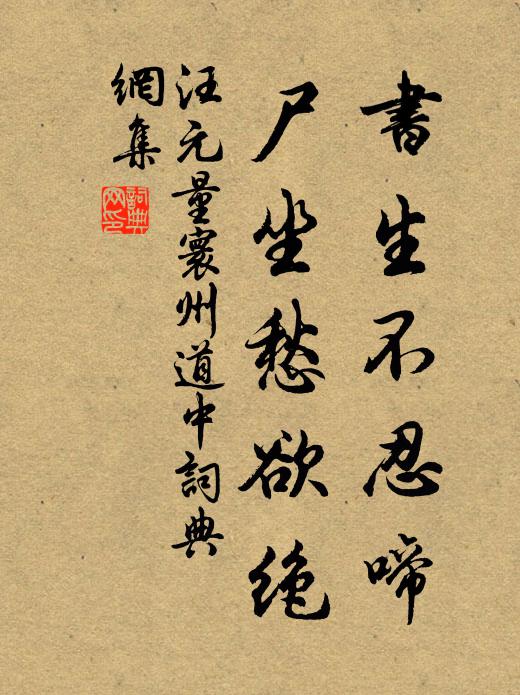 書生不忍啼
尸坐愁欲绝
汪元量寰州道中詞典
網集
詞典網印